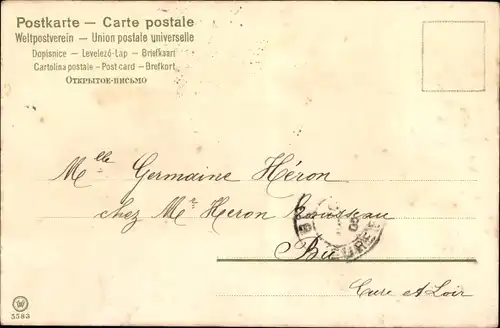 Postkarte – Carte postale
Weltpostverein – Union postale universelle
Dopisnice – Levelező-Lap – Briefkaart
Cartolina postale – Post card – Brefkort
Открытое-письмо
Mlle Germaine Héron
chez Mr Heron Rousseau
Bû
Eure et Loir
5583